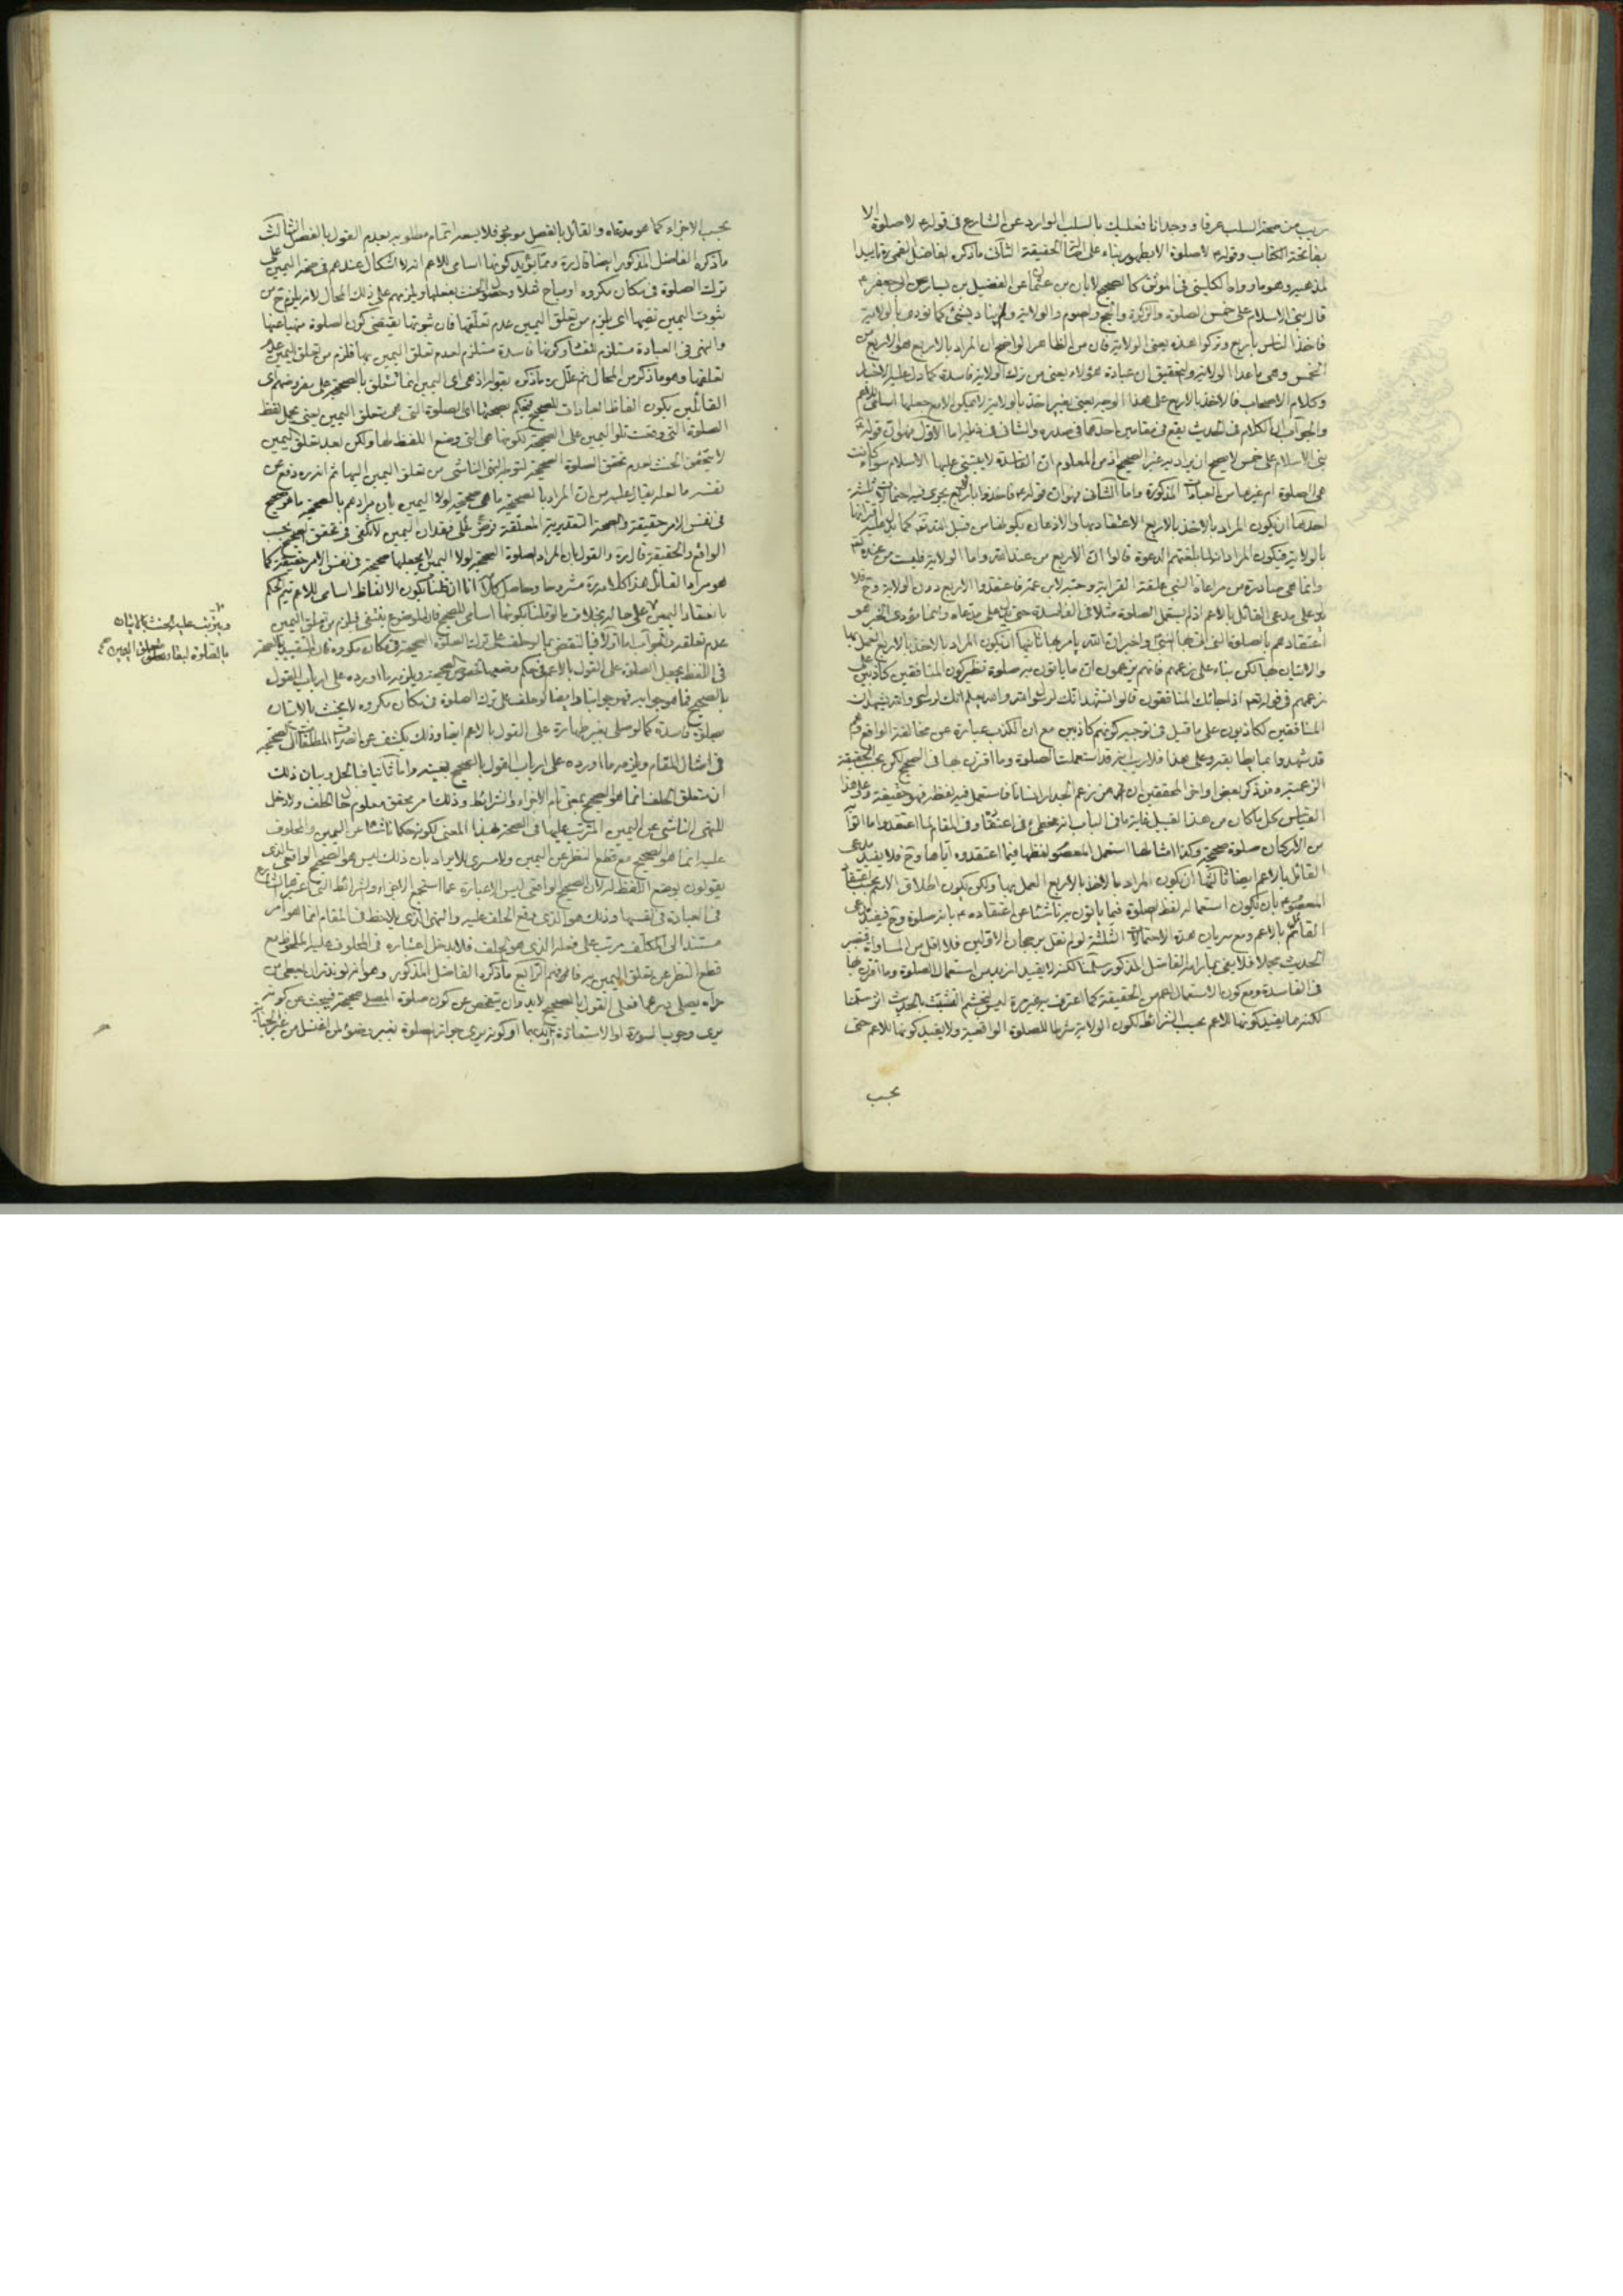 ريب من صحة السلب عرفا ووجدانا فعليك بالسلب الوارد عن الشارع في قوله لا صلوة الا
بفاتحة الكتاب وقوله لا صلوة الا بطهور بناء على الحقيقة الثالث ما ذكره الفاضل القمي ره تاييدا
لمذهبه وهو ما رواه الكليني في الموثق كالصحيح لابان بن عثمان عن الفضيل بن يسار عن ابي جعفر ع
قال بني الاسلام على خمس الصلوة والزكوة والحج والصوم والولاية ولم يناد بشيء كما نودي بالولاية
فاخذ الناس باربع وتركوا هذه يعني الولاية فان من الظاهر الواضح ان المراد بالاربع هو الاربع من
الخمس وهي ما عدا الولاية والتحقيق ان عبادة هؤلاء يعني من ترك الولاية فاسدة كما دل عليه الاخبار
وكلام الاصحاب فالاخذ بالاربع على هذا الوجه يعني بغير اخذ بالولاية لا يمكن الا مع جعلها اسامي للاعم
والجواب ان الكلام في الحديث يقع في مقامين احدهما في صدره والثاني في ذيله اما الاول فهو ان قوله
بني الاسلام على خمس لا يصح ان يراد به غير الصحيح اذ من المعلوم ان الفاسدة لا يبتني عليها الاسلام سواء كانت
هي الصلوة ام غيرها من العبادات المذكورة واما الثاني فهو ان قوله فاخذوا باربع يجري فيه احتمالات ثلثة
احدها ان يكون المراد بالاخذ بالاربع الاعتقاد بها والاذعان بكونها من قبل الله تعالى كما يدل عليه اقترانها
بالولاية فيكون المراد انه لما بلغتهم الدعوة قالوا ان الاربع من عند الله واما الولاية فليست من عنده تعالى
وانما هي صادرة من مراعاة النبي علقة القرابة وحبه لابن عمه فاعتقدوا الاربع دون الولاية وح فلا
يدل على مدعى القائل بالاعم اذ لم يستعمل الصلوة مثلا في الفاسدة حتى يدل على مدعاه وانما مؤدى الخبر هو
اعتقادهم بالصلوة التي اتى بها النبي واخبر ان الله يامر بها ثانيها ان يكون المراد بالاخذ بالاربع العمل بها
والاتيان بها لكن بناء على زعمهم فانهم يزعمون ان ما ياتون به صلوة نظير كون المنافقين كاذبين على
زعمهم في قوله تعالى اذا جاءك المنافقون قالوا نشهد انك لرسول الله والله يعلم انك لرسوله والله يشهد ان
المنافقين لكاذبون على ما قيل في توجيه كونهم كاذبين مع ان الكذب عبارة عن مخالفة الواقع وهم
قد شهدوا بما يطابقه وعلى هذا فلا ريب انه قد استعملت الصلوة وما اقترن بها في الصحيح لكن بحسب الحقيقة
الزعمية وقد ذكر بعض اواخر المحققين ان من زعم الجدار انسانا فاستعمل فيه لفظه فهو حقيقة وعلى هذا
القياس كل ما كان من هذا القبيل غاية ما في الباب انه مخطئ في اعتقاده وفي المقام لما اعتقدوا ما اتوا به
من الاركان صلوة صحيحة وكذا امثالها استعمل المعصوم لفظها فيما اعتقدوه اياها وح فلا يفيد مدعى
القائل بالاعم ايضا ثالثها ان يكون المراد بالاخذ بالاربع العمل بها ولكن يكون اطلاق الاسم بحسب اعتقاد
المعصوم بان يكون استعماله لفظ الصلوة فيما ياتون به ناشئا عن اعتقاده ع بانه صلوة وح فيفيد مدعى
القائل بالاعم ومع سريان هذه الاحتمالات الثلثة لو لم نقل برجحان الاولين فلا اقل من المساواة فيصير
الحديث مجملا فلا يفي بما رامه الفاضل المذكور سلمنا لكنه لا يفيد ازيد من استعمال الصلوة وما اقترن بها
في الفاسدة ومع كون الاستعمال اعم من الحقيقة كما اعترف به غير مرة كيف يتجشم التشبث بالحديث سلمنا
لكنه مما يفيد كونها للاعم بحسب الشرائط لكون الولاية شرطا للصلوة الواقعية ولا يفيد كونها للاعم حتى
بحسب
بحسب الاجزاء كما هو مدعاه والقائل بالفصل موجود فلا يسعه اتمام مطلوبه بعدم القول بالفصل الثالث
ما ذكره الفاضل المذكور ايضا قال ره ومما يؤيد كونها اسامي للاعم انه لا اشكال عندهم في صحة اليمين على
ترك الصلوة في مكان مكروه او مباح مثلا وحصول الحنث بفعلها ويلزمهم على ذلك المحال لانه يلزم ح من
ثبوت اليمين نفيها اي يلزم من تعلق اليمين عدم تعلقها فان ثبوتها يقتضي كون الصلوة منهيا عنها
والنهي في العبادة مستلزم للفساد وكونها فاسدة مستلزم لعدم تعلق اليمين بها فلزم من تعلق اليمين عدم
تعلقها وهو ما ذكر من المحال ثم علل ره ما ذكره بقوله اذ هي اي اليمين انما تتعلق بالصحيحة على مفروضهم اي
القائلين بكون الفاظ العبادات للصحيح فيحكم بصحتها اي الصلوة التي هي متعلق اليمين يعني يحمل لفظ
الصلوة التي وقعت تلو اليمين على الصحيحة لكونها هي التي وضع اللفظ لها ولكن بعد تعلق اليمين
لا يتحقق الحنث لعدم تحقق الصلوة الصحيحة لتوجه النهي الناشي من تعلق اليمين اليها ثم انه ره دفع عن
نفسه ما لعله يقال عليه من ان المراد بالصحيحة ما هي صحيحة لولا اليمين بان مرادهم بالصحيحة ما هو صحيح
في نفس الامر حقيقة والصحة التقديرية المعلقة على فقدان اليمين لا تكفي في تحقق الصحيح بحسب
الواقع والحقيقة قال ره والقول بان المراد الصلوة الصحيحة لولا اليمين لا يجعلها صحيحة في نفس الامر حقيقة كما
هو مراد القائل هذا كلامه ره مشروحا وحاصل كلامه انا ان قلنا بكون الالفاظ اسامي للاعم يتم الحكم
بانعقاد اليمين على حاله بخلاف ما لو قلنا بكونها اسامي للصحيح فان الموضوع ينتفي فيلزم من تعلق اليمين
عدم تعلقه والجواب اما اولا فبالنقض بما لو حلف على ترك الصلوة الصحيحة في مكان مكروه فان التقييد بالصحة
في اللفظ يجعل الصلوة على القول بالاعم في حكم وضعها لخصوص الصحيحة ويلزمه ما اورده على ارباب القول
بالصحيح فما هو جوابه فهو جوابنا وايضا لو حلف على ترك الصلوة في مكان مكروه لا يحنث بالاتيان
بصلوة فاسدة كما لو صلى بغير طهارة على القول بالاعم ايضا وذلك يكشف عن انصراف المطلقات الى الصحيحة
في امثال المقام ويلزمه ما اورده على ارباب القول بالصحيح بعينه واما ثانيا فبالحل وبيان ذلك
ان متعلق الحلف انما هو الصحيح بمعنى تام الاجزاء والشرائط وذلك امر محقق معلوم حال الحلف ولا دخل
للنهي الناشي عن اليمين المترتب عليها في الصحة بهذا المعنى لكونه حكما ناشئا عن اليمين والمحلوف
عليه انما هو الصحيح مع قطع النظر عن اليمين ولا مسرى للايراد بان ذلك ليس هو الصحيح الواقعي الذي
يقولون بوضع اللفظ له لان الصحيح الواقعي ليس الا عبارة عما استجمع الاجزاء والشرائط التي اعتبرها الشارع
في العبادة في نفسها وذلك هو الذي وقع الحلف عليه والنهي الذي يلاحظ في المقام انما هو امر
مستند الى المكلف مرتب على فعله الذي هو الحلف فلا يدخل اعتباره في المحلوف عليه الملحوظ مع
قطع النظر عن تعلق اليمين به فافهم الرابع ما ذكره الفاضل المذكور وهو انه لو نذر ان يعطي من
يراه يصلي درهما فعلى القول بالصحيح لا بد وان يتفحص عن كون صلوة المصلي صحيحة فيبحث عن كونه
يرى وجوب السورة او الاستعاذة او ندبهما او كونه يرى جواز الصلوة بغير وضوء لمن اغتسل من غير الجنابة
ويترتب عليه الحنث بالاتيان
بالصلوة بعد تعلق اليمين